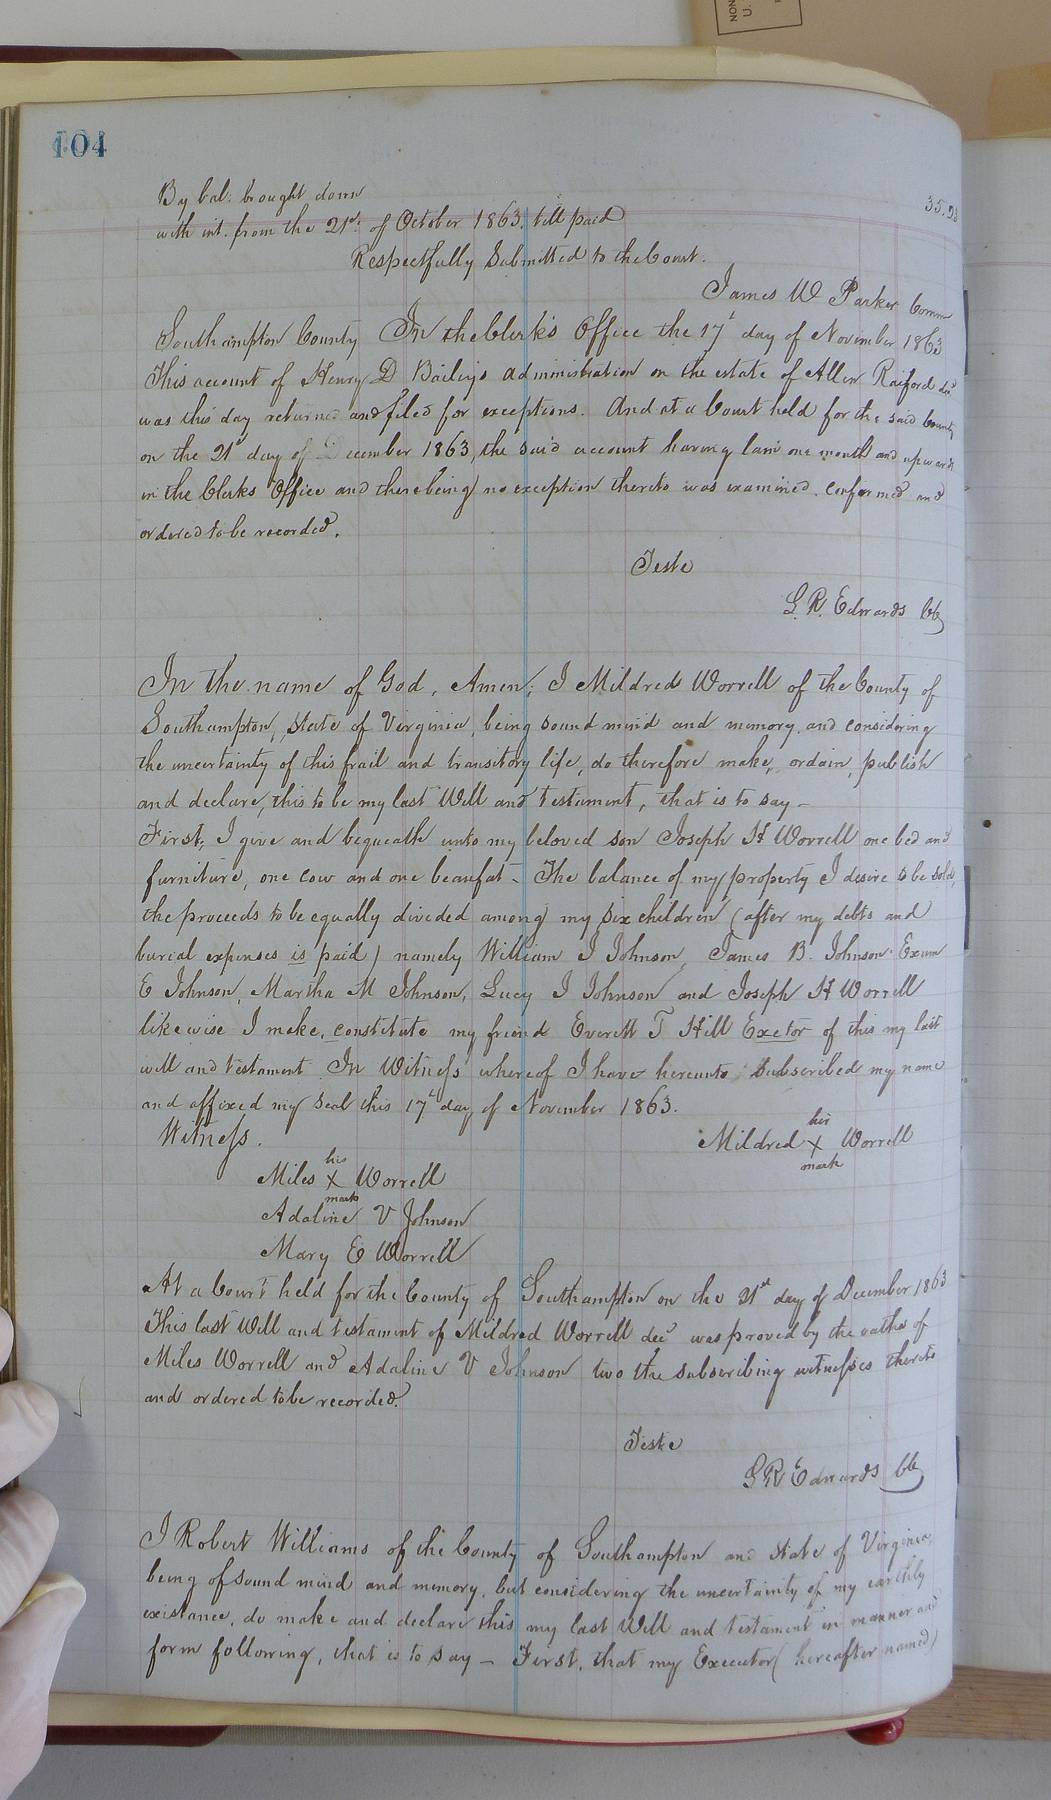 NON
U.
104
By bal: brought down 35.93
with int. from the 21st of October 1863. till paid
Respectfully Submitted to the Court.
James W Parker Comm
Southampton County In the Clerk's Office the 17t day of November 1863
This account of Henry D Bailey's administration on the estate of Allen Raiford decd
was this day returned and filed for exceptions. And at a Court held for the said County
on the 21st day of December 1863, the said account having lain one month and upwards
in the Clerks Office and there being no exception thereto was examined. confirmed and
ordered to be recorded.
Teste
L. R. Edwards CC
In the name of God, Amen; I Mildred Worrell of the County of
Southampton, State of Virginia, being sound mind and memory, and considering
the uncertainty of this frail and transitory life, do therefore make, ordain, publish
and declare, this to be my last Will and testament, that is to say –
First; I give and bequeath unto my beloved son Joseph H Worrell one bed and
furniture, one cow and one beaufat – The balance of my property I desire to be sold,
the proceeds to be equally divided among my six children (after my debts and
burial expenses is paid) namely William I Johnson, James B. Johnson Exum
E Johnson, Martha M Johnson, Lucy I Johnson and Joseph H Worrell
likewise I make, constitute my friend Everett T Hill Exctor of this my last
will and testament In Witness whereof I have hereunto Subscribed my name
and affixed my Seal this 17th day of November 1863.
Witness.
her
Mildred X Worrell
mark
his
Miles X Worrell
mark
Adaline V Johnson
Mary E Worrell
At a Court held for the County of Southampton on the 21st day of December 1863
This last Will and testament of Mildred Worrell decd was proved by the oaths of
Miles Worrell and Adaline V Johnson two the subscribing witnesses thereto
and ordered to be recorded.
Teste
L R Edwards CC
I Robert Williams of the County of Southampton and State of Virginia,
being of sound mind and memory, but considering the uncertainty of my earthly
existance, do make and declare this my last Will and testament in manner and
form following, that is to say – First, that my Executor (hereafter named)